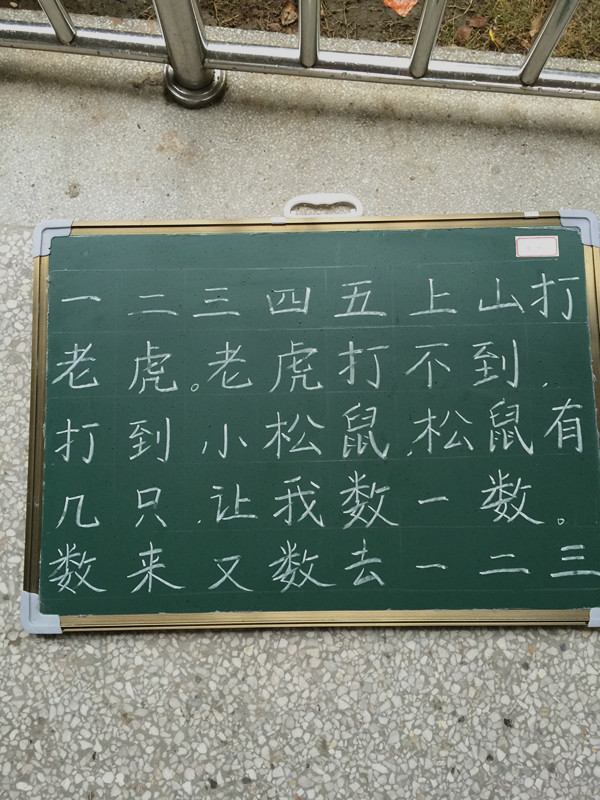 一二三四五上山打
老虎。老虎打不到,
打到小松鼠,松鼠有
几只,让我数一数。
数来又数去一二三